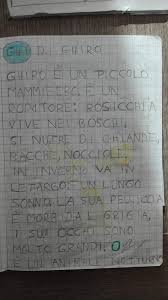 GHI DI GHIRO
GHIRO È UN PICCOLO
MAMMIFERO. È UN
RODITORE: ROSICCHIA
VIVE NEI BOSCHI.
SI NUTRE DI GHIANDE,
BACCHE, NOCCIOLE
IN INVERNO VA IN
LETARGO: UN LUNGO
SONNO. LA SUA PELLICCIA
È MORBIDA E GRIGIA,
I SUOI OCCHI SONO
MOLTO GRANDI.
È UN ANIMALE NOTTURNO